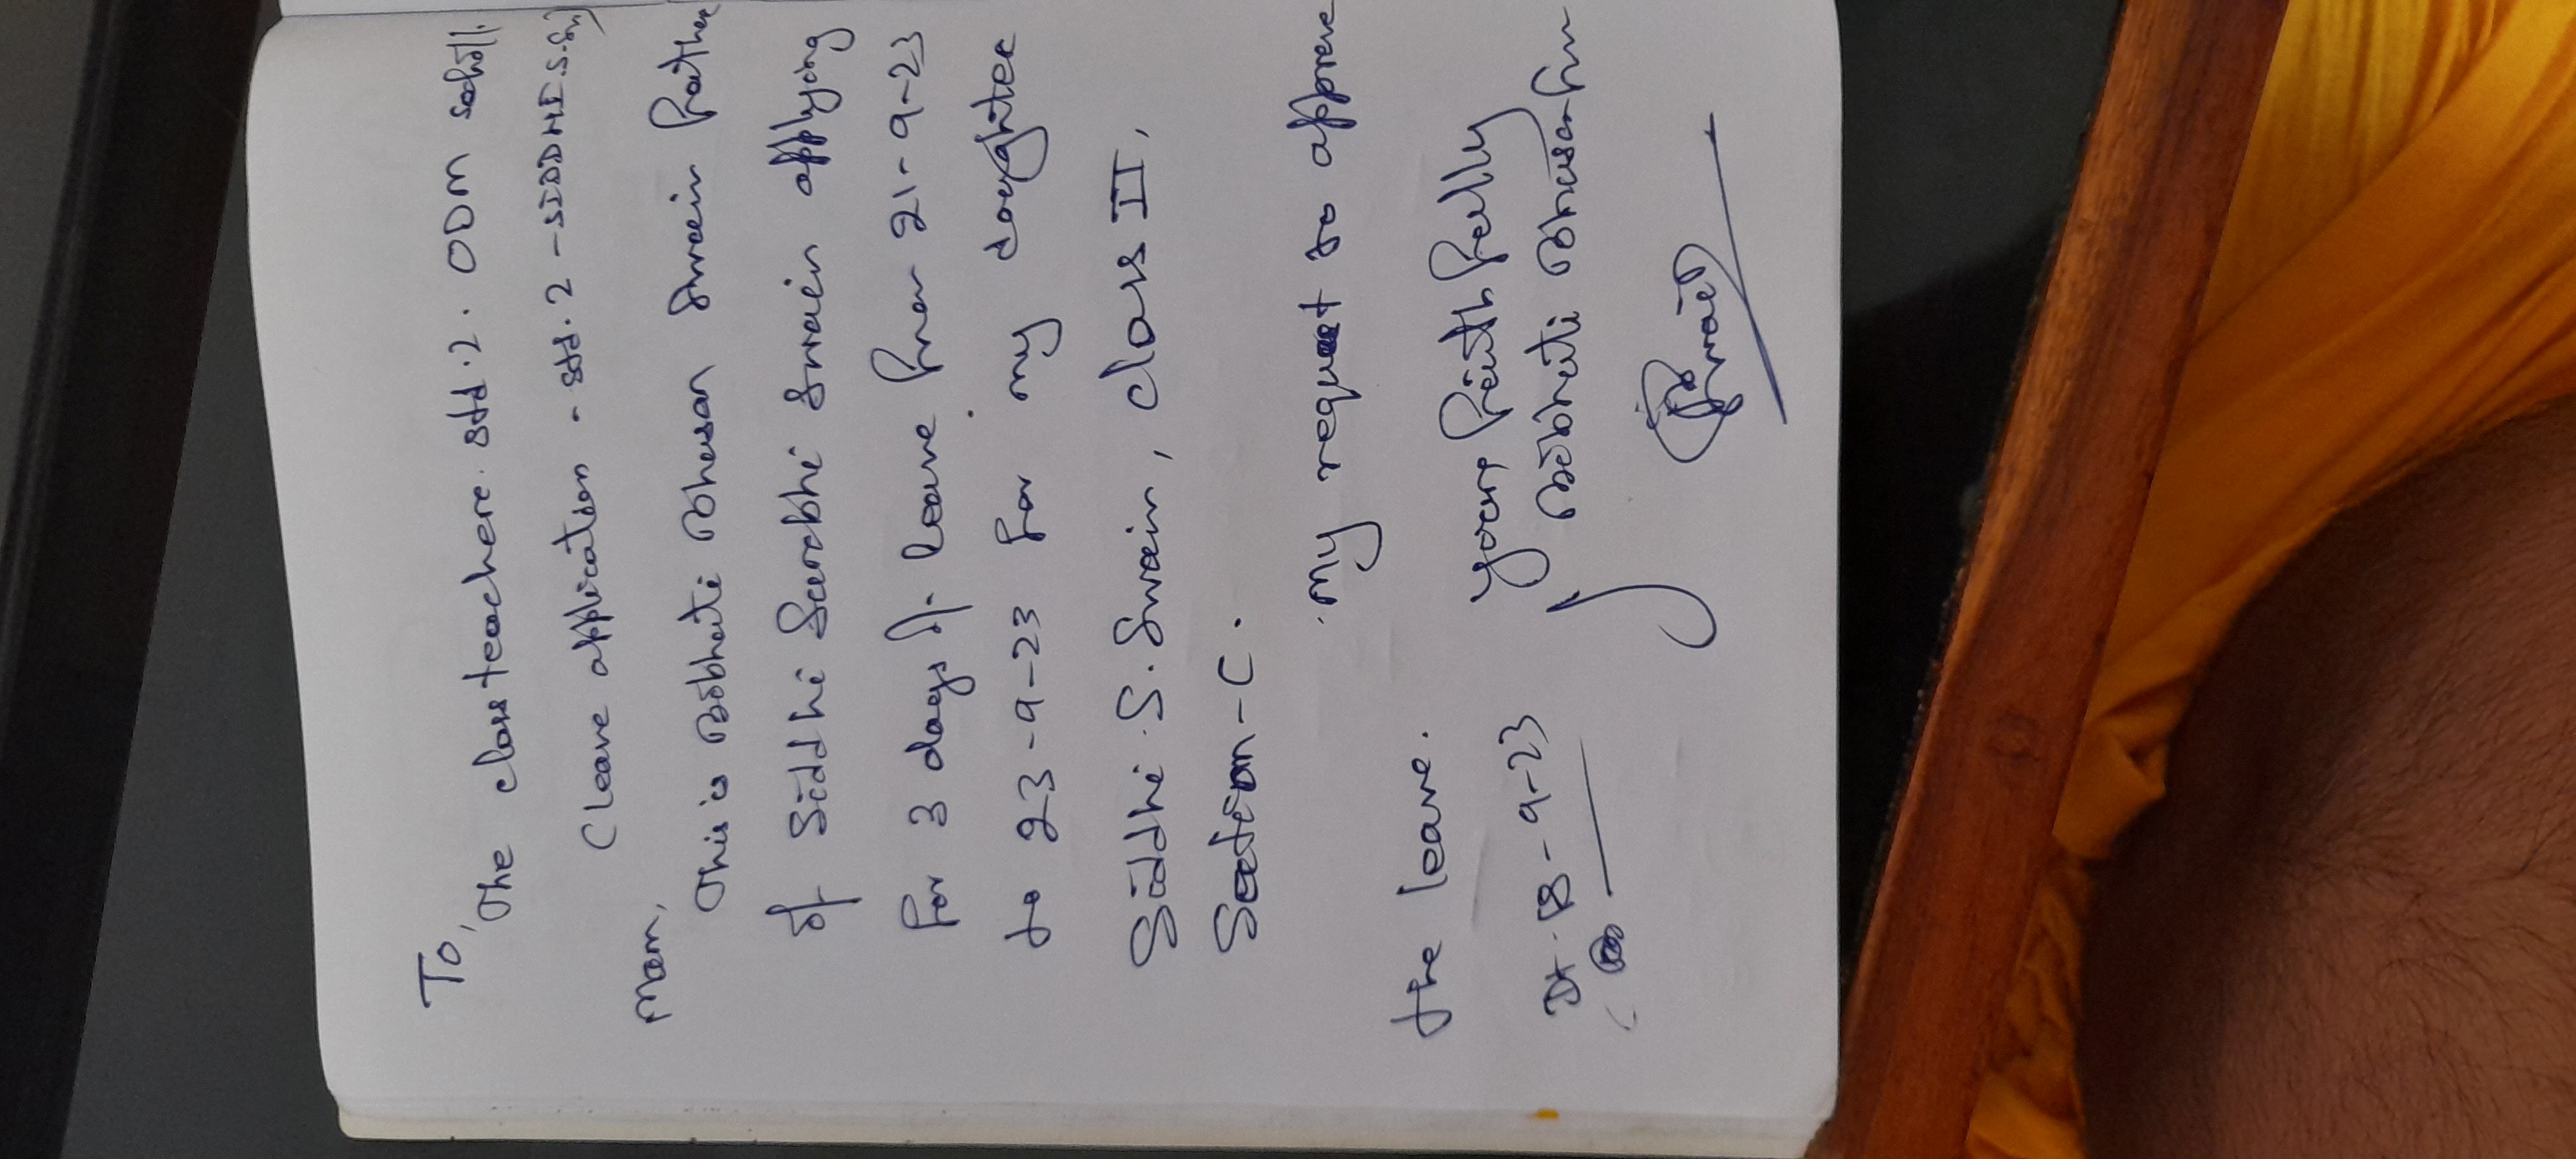 To,
The class teachere. std.2. ODM
(Leave application - std.2 - SIDDHI.S.
Mam,
This is Bibhuti Bhusan Swain Father
of Siddhi Surabhi Swain applying
For 3 days of leave From 21-9-23
to 23-9-23 For my doughter
Siddhi.S.Swain, class II,
Section-C.
My request to approve
the leave.
yours Faithfully
Bibhuti Bhusan
Dt. -9-23